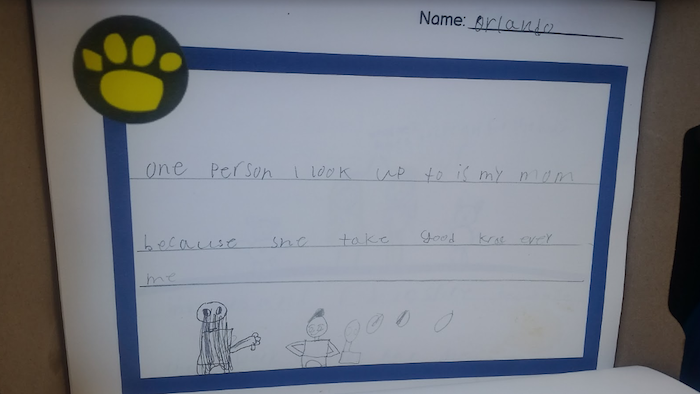 Name: orlando
one person I look up to is my mom
because she take good krae over
me